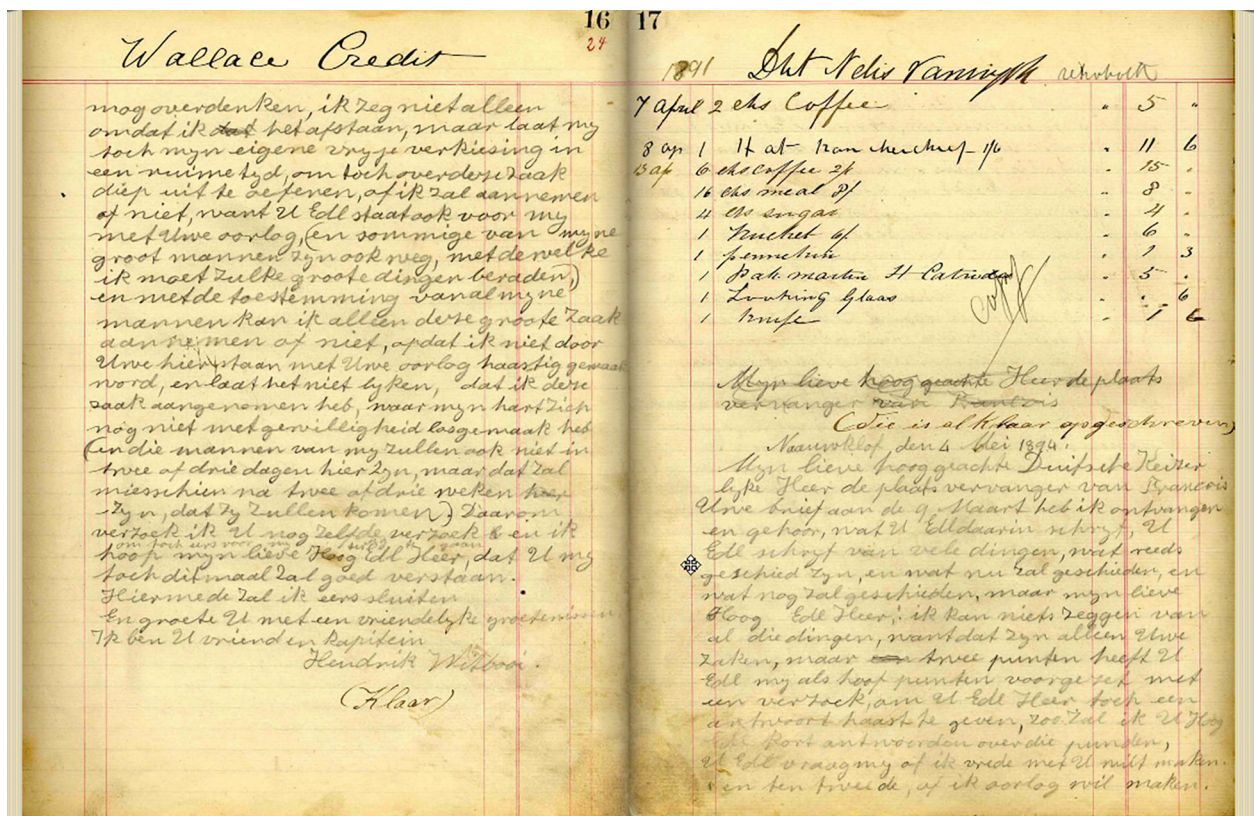 16
24
Wallace Credit
mog overdenken, ik zeg niet alleen
omdat ik dat het afstaan, maar laat my
toch myn eigene vrye verkiesing in
een ruime tyd, om toch over deze zaak
diep uit te oefenen, of ik zal aannemen
of niet, want U Edl staat ook voor my
met Uwe oorlog, (en sommige van myne
groot mannen zyn ook weg, met de welke
ik moet zulke groote dingen beraden,)
en met de toestemming van al myne
mannen kan ik alleen deze groote zaak
aannemen of niet, opdat ik niet door
Uwe hier staan met Uwe oorlog haastig gemaak
word, en laat het niet lyken, dat ik deze
zaak aangenomen heb, waar myn hart zich
nog niet met gewilligheid losgemaak heb
(en die mannen van my zullen ook niet in
twee of drie dagen hier zyn, maar dat zal
miesschien na twee of drie weken hier
zyn, dat zy zullen komen) Daarom
verzoek ik U nog zelfde verzoek & en ik
om toch eers voor
hoop myn lieve Hoog Edl Heer, dat U my
toch ditmaal zal goed verstaan.
Hiermede zal ik eers sluiten
En groete U met een vriendelyke groetenissen
Ik ben U vriend en kapitein
Hendrik Witbooi.
(Klaar)
17
1891 Dbt Nelis rehoboth
7 April 2 lbs Coffee " 5 "
8 ap 1 Hat 1/6 " 11 6
13 ap 6 lbs coffee 2/ " 15 "
16 lbs meal 8/ " 8 "
4 lbs sugar " 4 "
1 6/ " 6 "
1 " 1 3
1 Pak martin H " 5 "
1 Looking Glaas " " 6
1 knife " 1 6
Myn lieve hoog geachte Heer de plaats
vervanger van Francois
(die is al klaar opgeschreven)
Naauwklof den 4 Mei 1894.
Myn lieve hoog geachte Duitsche Keizer
lyke Heer de plaats vervanger van Francois
Uwe brief aan de 9 Maart heb ik ontvangen
en gehoor, wat U Edl daarin schryf, U
Edl schryf van vele dingen, wat reeds
geschied zyn, en wat nu zal geschieden, en
wat nog zal geschieden, maar myn lieve
Hoog Edl Heer! ik kan niets zeggen van
al die dingen, want dat zyn alleen Uwe
zaken, maar twee punten heeft U
Edl my als hoof punten voorgezet met
een verzoek, om U Edl Heer toch een
antwoort haast te geven, zoo zal ik U Hoog
Edl kort antwoorden over die punden,
U Edl vraag my of ik vrede met U wilt maken.
en ten tweede, of ik oorlog wil maken.